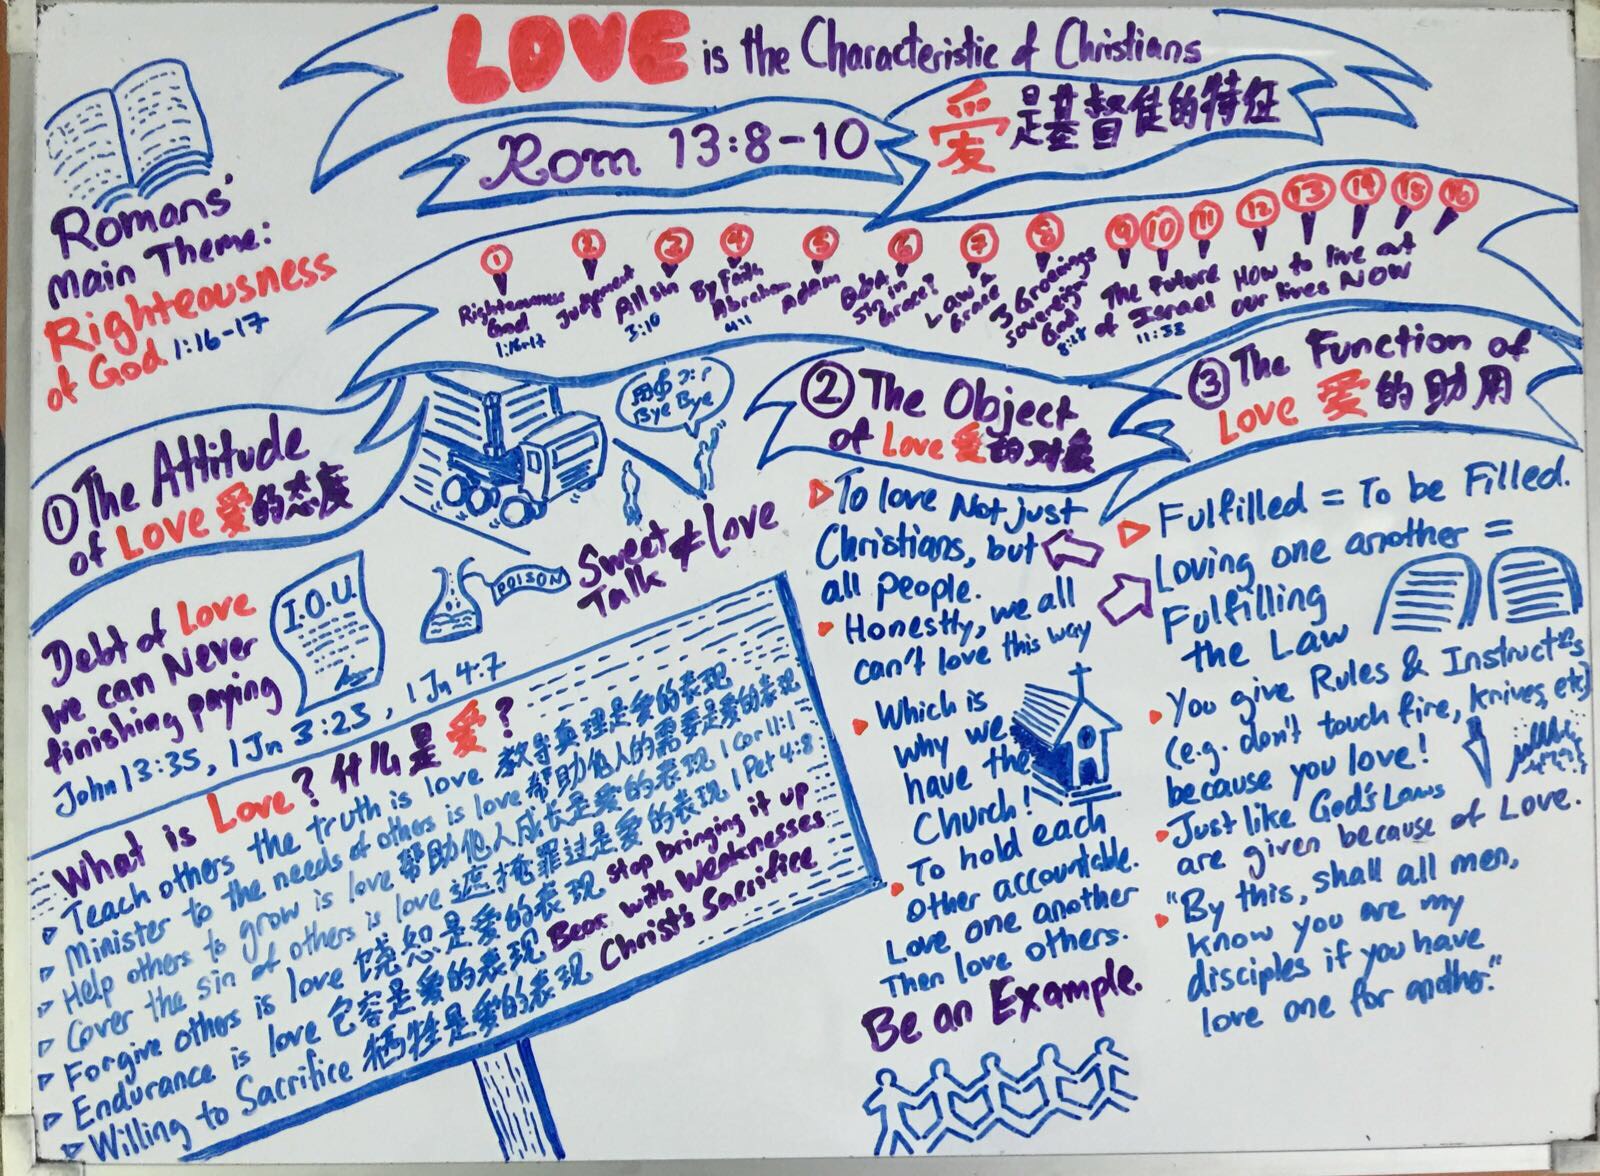 LOVE is the Characteristic of Christians
爱是基督徒的特征
Rom 13:8-10
Romans'
Main Theme:
Righteousness
of God 1:16-17
1 2 3 4 5 6 7 8 9 10 11 12 13 14 15 16
Righteousness
God
1:16-17
Judgement
All sin
3:10
By Faith
Abraham
4:11
Adam
Q&A
Sin in
Grace?
Law &
Grace
3 Groanings
Sovereign
God
8:28
The Future
of Israel
11:33
How to live out
our lives NOW
① The Attitude
of Love 爱的态度
Bye Bye
Sweet
Talk ≠ Love
POISON
I.O.U.
Debt of Love
we can Never
finishing paying
John 13:35, 1 Jn 3:23, 1 Jn 4:7
What is Love? 什么是爱?
Teach others the truth is love 教导真理是爱的表现
Minister to the needs of others is love 帮助他人的需要是爱的表现
Help others to grow is love 帮助他人成长是爱的表现 1 Cor 11:1
Cover the sin of others is love 遮掩罪过是爱的表现 1 Pet 4:8
Forgive others is love 饶恕是爱的表现 Stop bringing it up
Endurance is love 包容是爱的表现 Bear with Weaknesses
Willing to Sacrifice 牺牲是爱的表现 Christ's Sacrifice
② The Object
of Love 爱的对象
To love Not just
Christians, but
all people.
Honestly, we all
can't love this way
Which is
why we
have the
Church!
To hold each
other accountable.
Love one another
Then love others.
Be an Example.
③ The Function of
Love 爱的助用
Fulfilled = To be Filled.
Loving one another =
Fulfilling
the Law
You give Rules & Instruct°s
(e.g. don't touch fire, knives, etc)
because you love!
Just like God's Laws
are given because of Love.
"By this, shall all men,
know you are my
disciples if you have
love one for another."